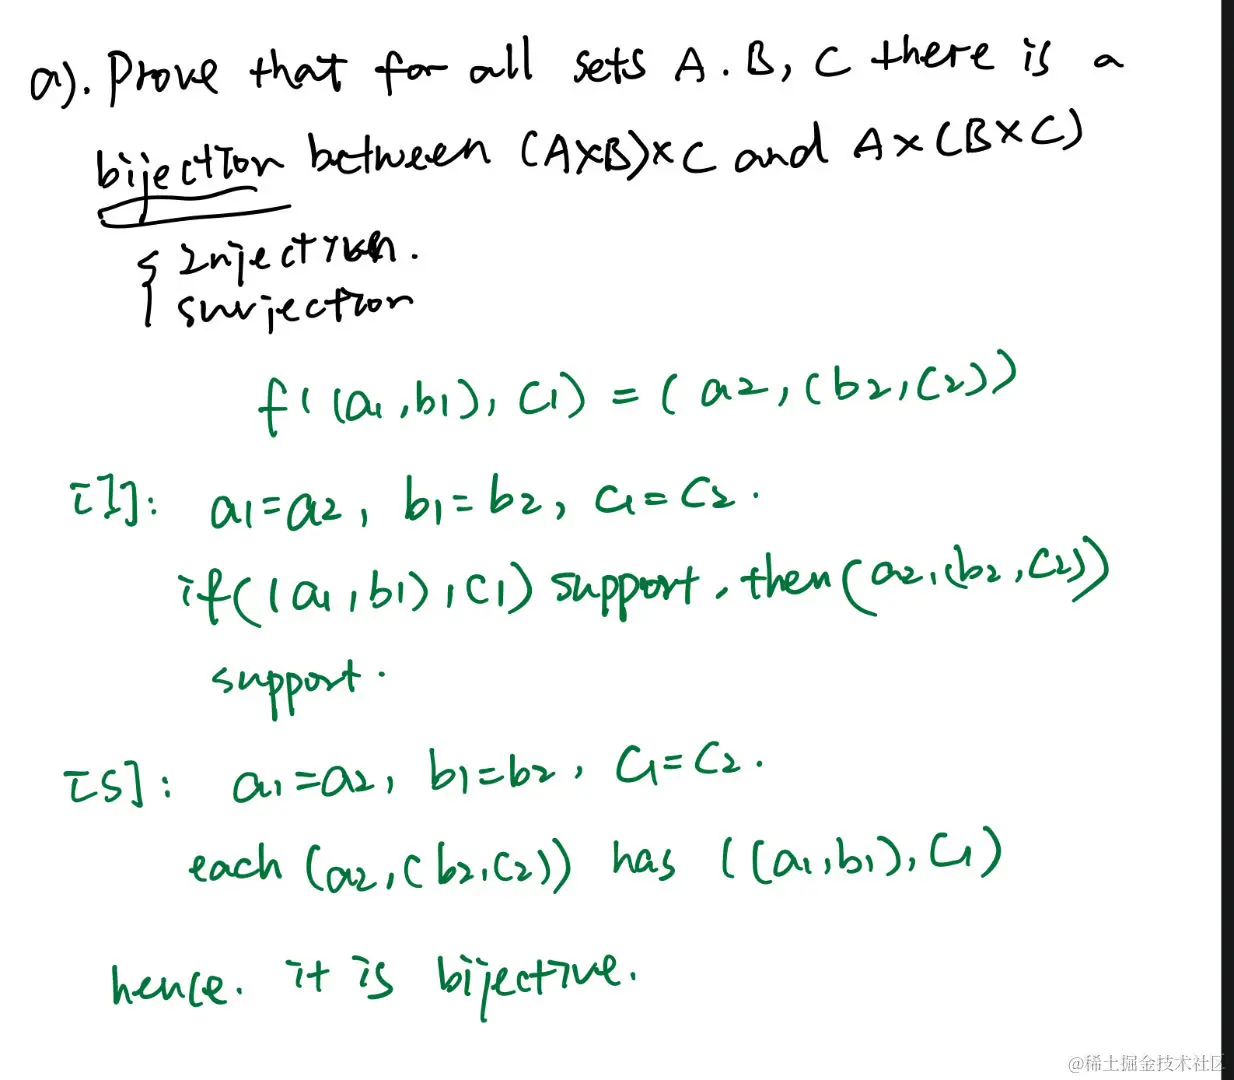 a). Prove that for all sets A. B, C there is a
bijection between (A×B)×C and A×(B×C)
{ Injection.
surjection
f((a1,b1), C1) = (a2,(b2,C2))
[I]: a1=a2, b1=b2, C1=C2.
if((a1,b1),C1) support, then(a2,(b2,C2))
support.
[S]: a1=a2, b1=b2, C1=C2.
each (a2,(b2,C2)) has ((a1,b1),C1)
hence. it is bijective.
@稀土掘金技术社区